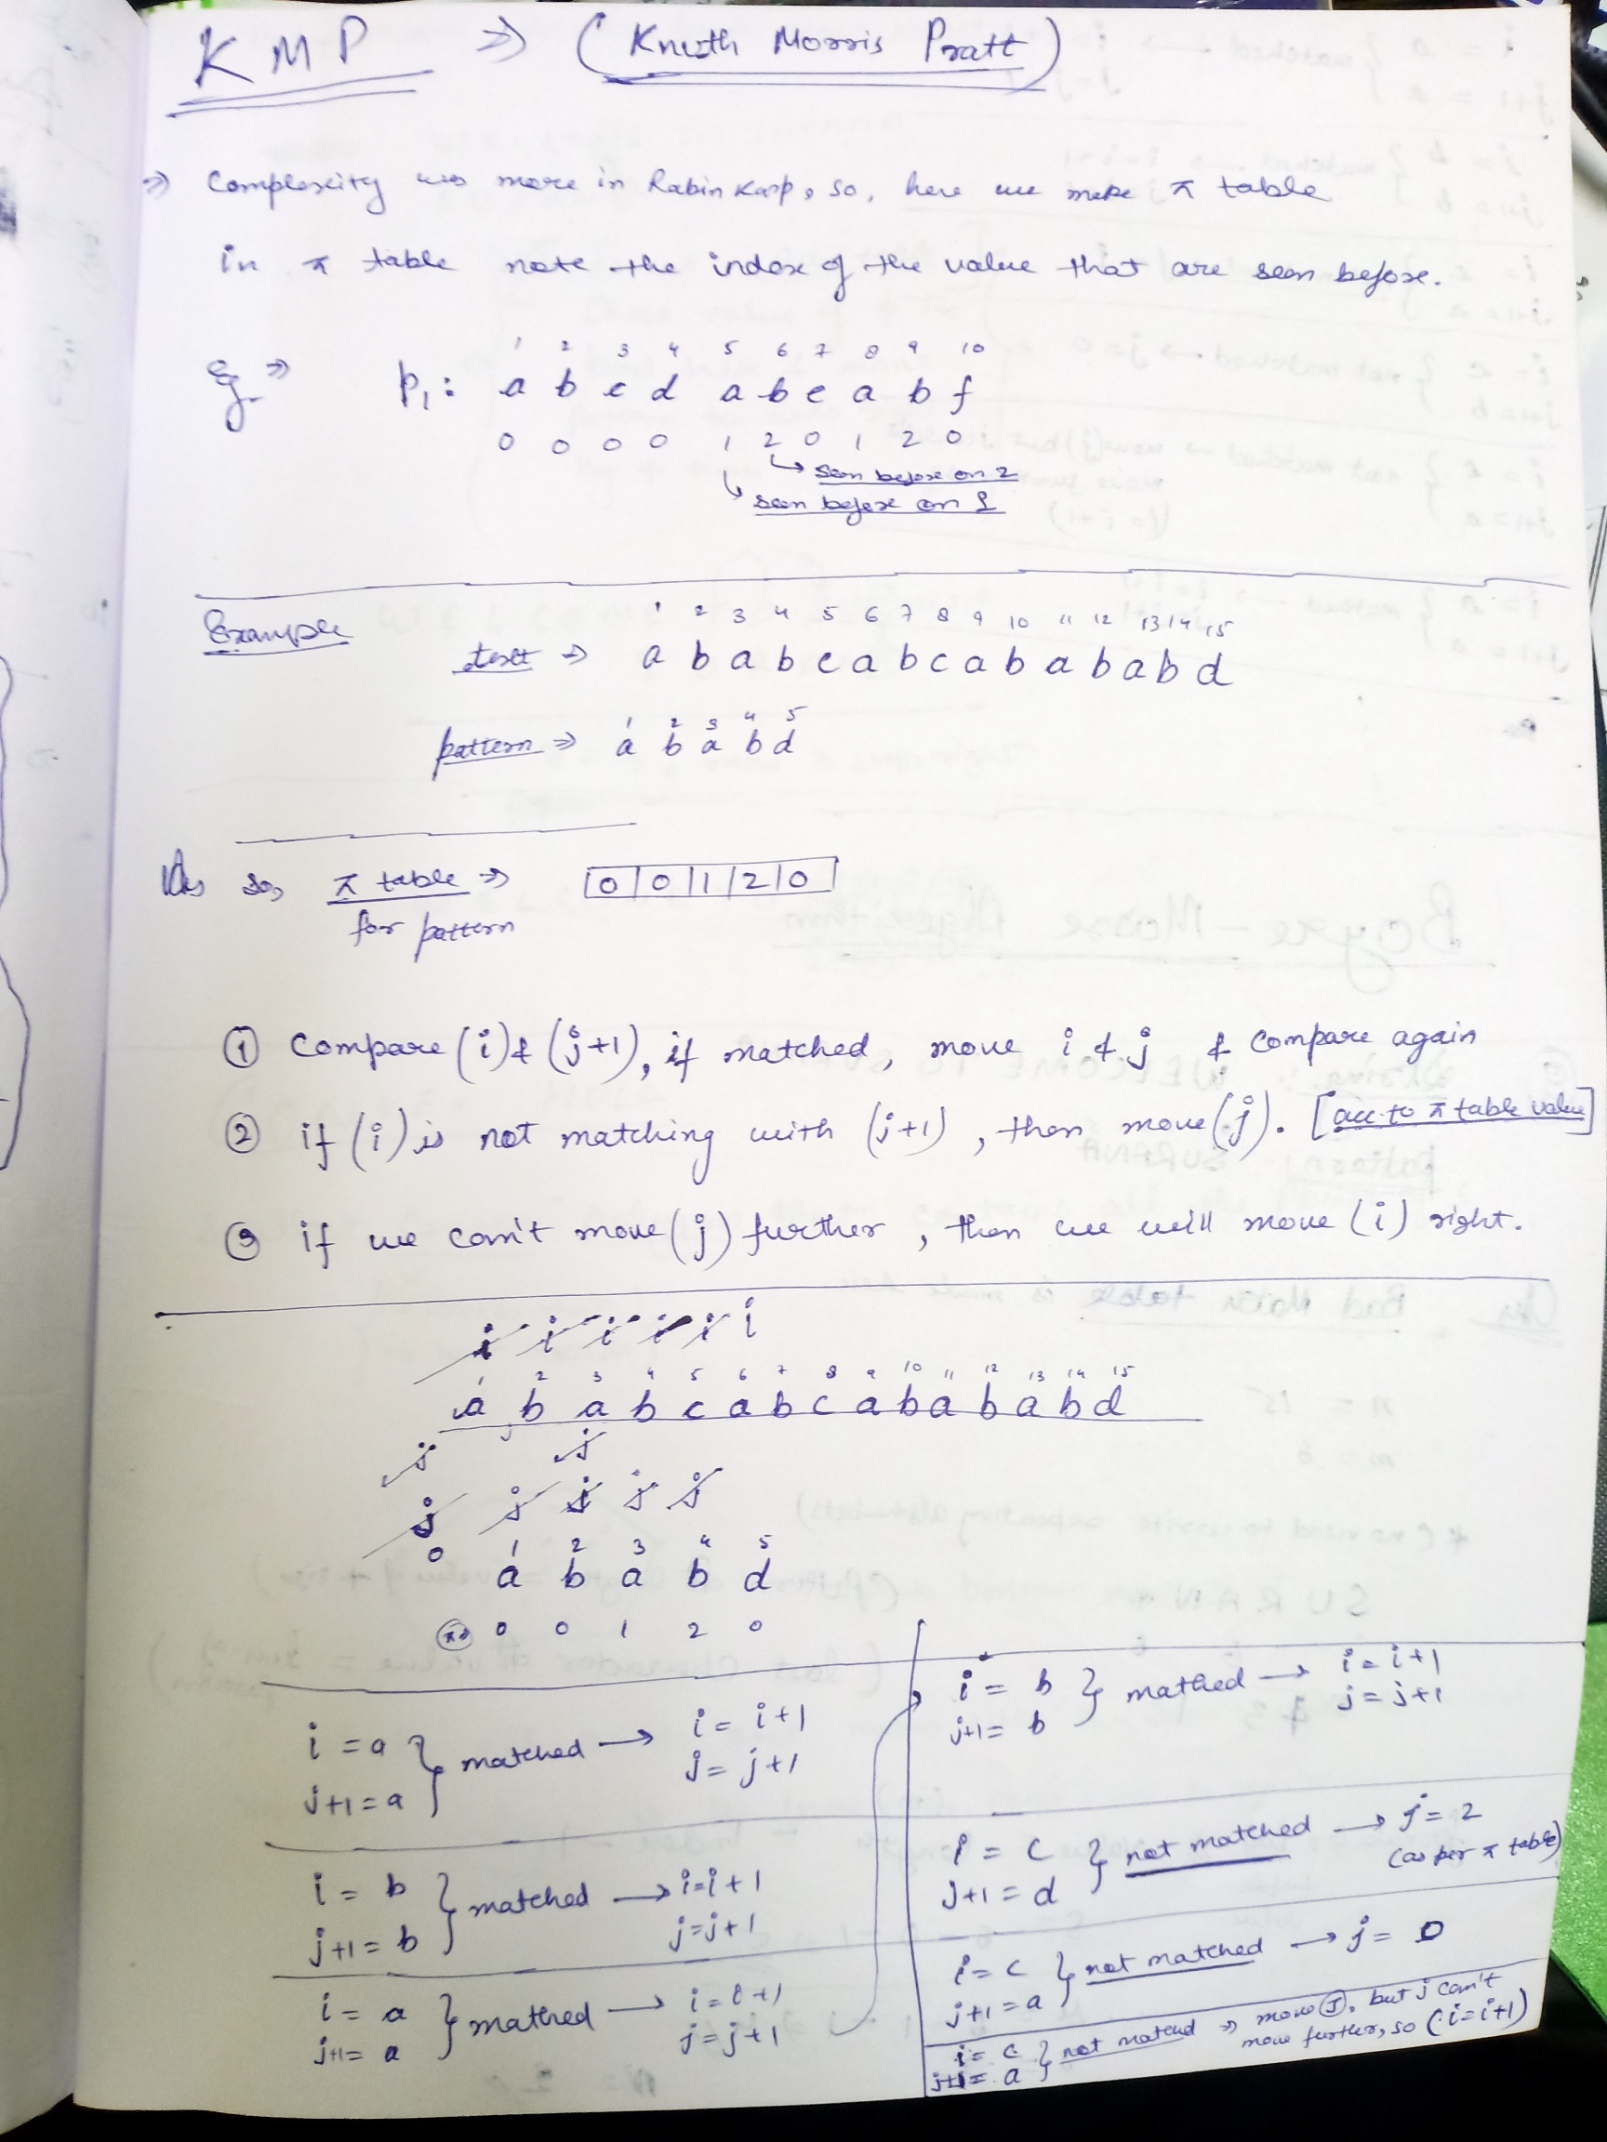 KMP ⇒ (Knuth Morris Pratt)
⇒ Complexity was more in Rabin Karp, so, here we make π table
in π table note the index of the value that are seen before.
Eg. ⇒
1 2 3 4 5 6 7 8 9 10
P₁: a b c d a b e a b f
0 0 0 0 1 2 0 1 2 0
↳ seen before on 2
↳ seen before on 1
Example
1 2 3 4 5 6 7 8 9 10 11 12 13 14 15
text ⇒ a b a b c a b c a b a b a b d
1 2 3 4 5
pattern ⇒ a b a b d
so, π table ⇒ |0|0|1|2|0|
for pattern
① Compare (i) & (j+1), if matched, move i & j & compare again
② if (i) is not matching with (j+1), then move (j). [acc. to π table value]
③ if we can't move (j) further, then we will move (i) right.
i i i i i i
1 2 3 4 5 6 7 8 9 10 11 12 13 14 15
a b a b c a b c a b a b a b d
j j
j j j j j
0 1 2 3 4 5
a b a b d
π⇒ 0 0 1 2 0
i = a
j+1 = a } matched → i = i+1
j = j+1
i = b
j+1 = b } matched → i=i+1
j=j+1
i = a
j+1= a } mathed → i=i+1
j=j+1
i = b
j+1= b } mathed → i=i+1
j=j+1
i = c
j+1 = d } not matched → j=2
(as per π table)
i= c
j+1 =a } not matched → j= 0
i= c
j+1= a } not matend ⇒ move (j), but j can't
move further, so (i=i+1)